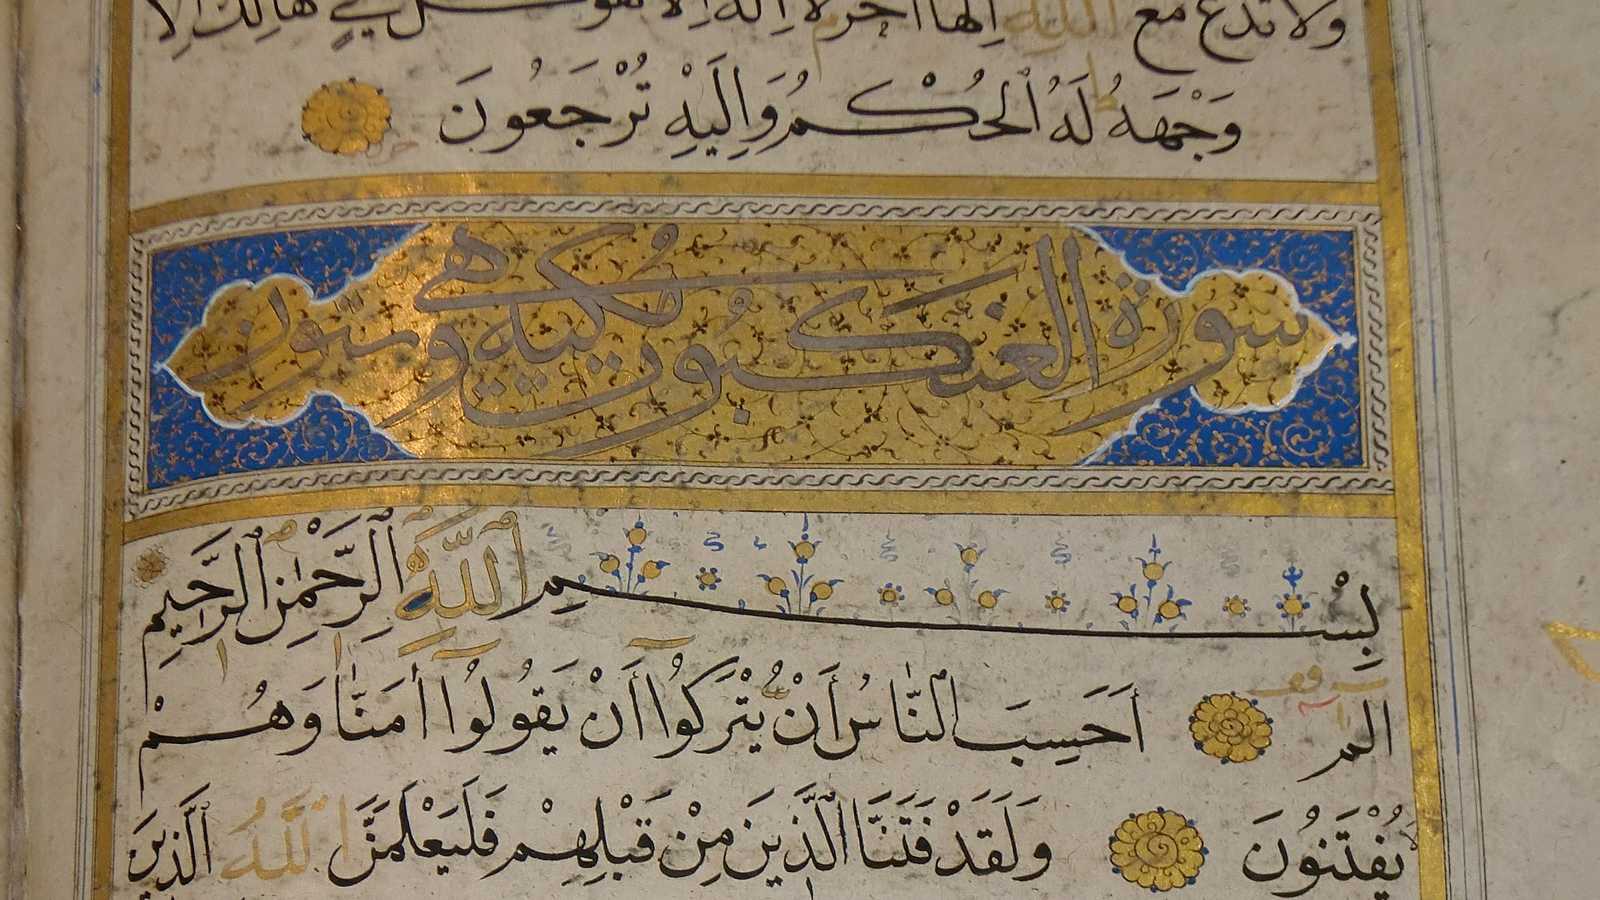 ولا تدع مع الله إلها آخر لا إله إلا هو كل شيء هالك إلا
وَجْهَهُ لَهُ الْحُكْمُ وَإِلَيْهِ تُرْجَعُونَ
سورة العنكبوت مكية وهي ستون
بِسْمِ اللَّهِ الرَّحْمٰنِ الرَّحِيمِ
الم أَحَسِبَ النَّاسُ أَنْ يُتْرَكُوا أَنْ يَقُولُوا أٰمَنَّا وَهُمْ
يُفْتَنُونَ وَلَقَدْ فَتَنَّا الَّذِينَ مِنْ قَبْلِهِمْ فَلَيَعْلَمَنَّ اللَّهُ الَّذِينَ